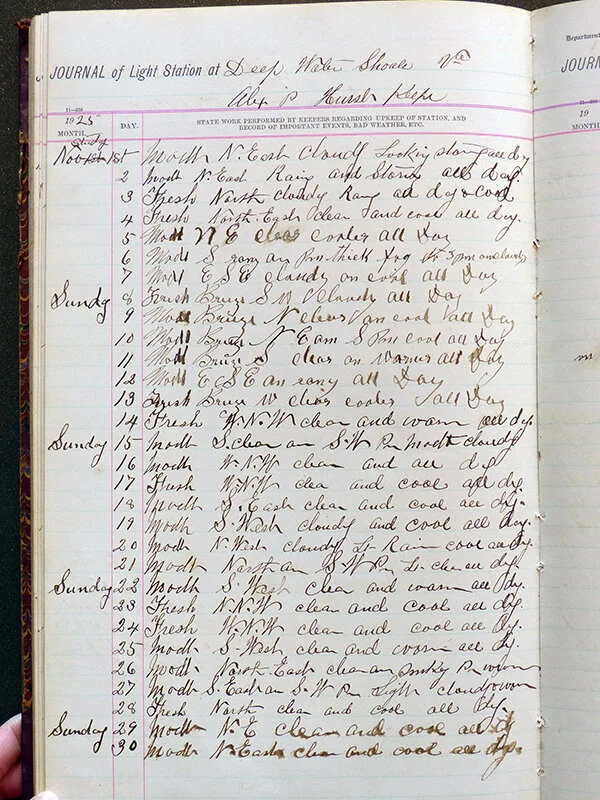 JOURNAL of Light Station at Deep Water Shoals Va
Alex P Hurst Keepr
Department
JOURN
11—358
1925
MONTH. DAY. STATE WORK PERFORMED BY KEEPERS REGARDING UPKEEP OF STATION, AND RECORD OF IMPORTANT EVENTS, BAD WEATHER, ETC.
19
MONTH
Nov 1st Modth N. East cloudy Looking stormy all dy
2 modt N. East Rainy and Stormy all day.
3 Fresh North cloudy Rainy all day & cool
4 Fresh North-East clear and cool all dey.
5 Modt N E clear cooler all Day
6 Modt S rany am Pm thick fog 3 pm cloudy
7 Modt E S E cloudy an cool all Day
Sundy 8 Fresh Breize S W Cloudy all Day
9 Modt Breize N clear an cool all Day
10 Modt Breize N E am S Pm cool all Day
11 Modt Breize S clear an warmer all Day
12 Modt E S E an rany all Day
13 Fresh Breize W clear cooler all Day
14 Fresh W.N.W clear and warm all dy.
Sunday 15 Modth S. clear am S-W Pm Modth cloudy
16 modth W.N.W clear and all dy
17 Fresh W.N.W clea and cool all dy.
18 Modth S. East clear and cool all dy.
19 Modth S. West cloudy and cool all dey.
20 Modth N. West cloudy Lt Rain cool all Dy.
21 Modth North am S W Pm Lt clear all dey
Sunday 22 Modth S. West clear and warm all dy.
23 Fresh N.N.W clear and cool all dy.
24 Fresh W.N.W clear and cool all dy.
25 Modt S. West clear and warm all dy.
26 Modt North-East clear am smoky Pm warm
27 Modth S. East am S-W Pm Light cloudy & warm
28 Fresh North clear and cool all dy.
Sunday 29 Modth N. E clear and cool all dy
30 Modth N. East clear and cool all dy.